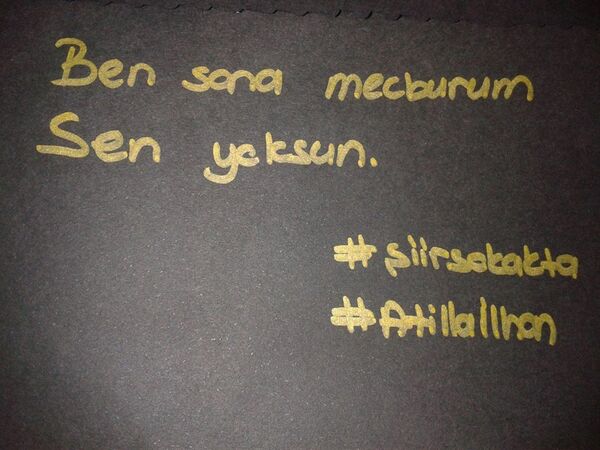 Ben sana mecburum
Sen yoksun.
# şiirsokakta
# Atillaİlhan